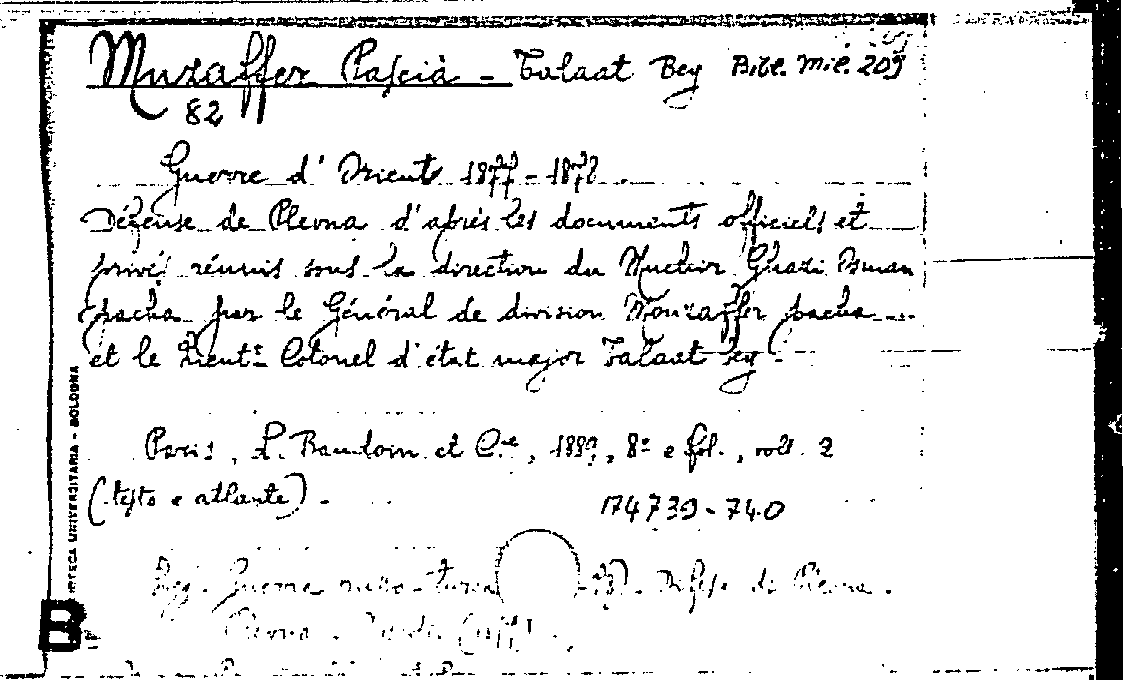 Muzaffer Pascià - Talaat Bey Bibl. Mil. 209
82
Guerre d'Orient 1877-1878.
Défense de Plevna d'après les documents officiels et
privés réunis sous la direction du Muchir Ghazi Osman
pacha par le Général de division Mouzaffer pacha
et le Lieut.t Colonel d'état major Talaat bey.
Paris, L. Baudoin et C.ie, 1889, 8° e fol., voll. 2
(testo e atlante).
174739-740
Guerra russo-turca Difesa di Plevna.
Plevna.
BIBLIOTECA UNIVERSITARIA - BOLOGNA
B